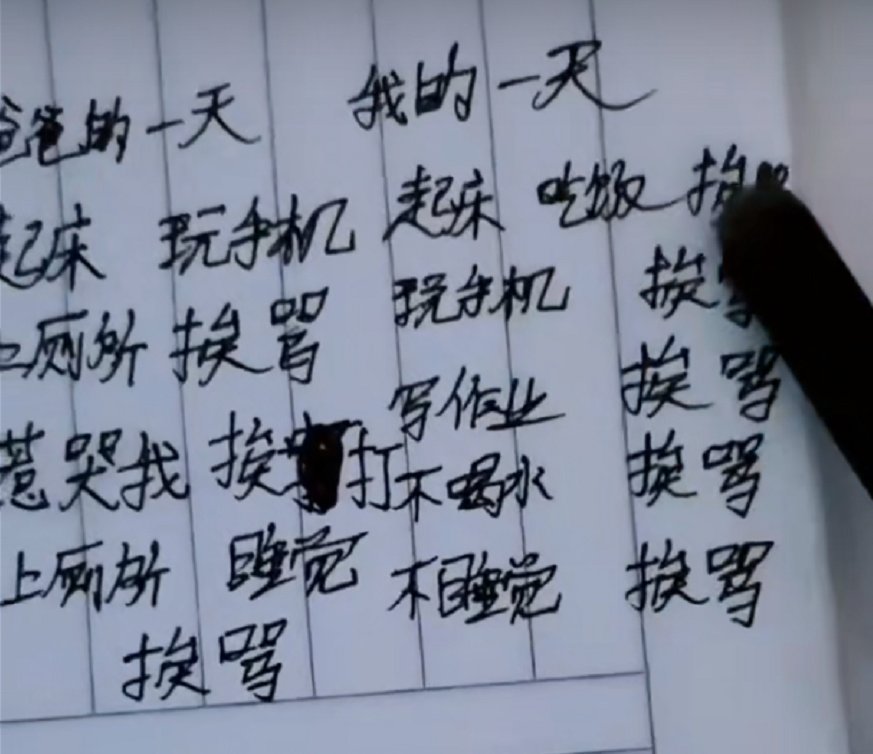 爸爸的一天
起床 玩手机
上厕所 挨骂
惹哭我 挨打
上厕所 睡觉
挨骂
我的一天
起床 吃饭 挨骂
玩手机 挨骂
写作业 挨骂
不喝水 挨骂
不睡觉 挨骂